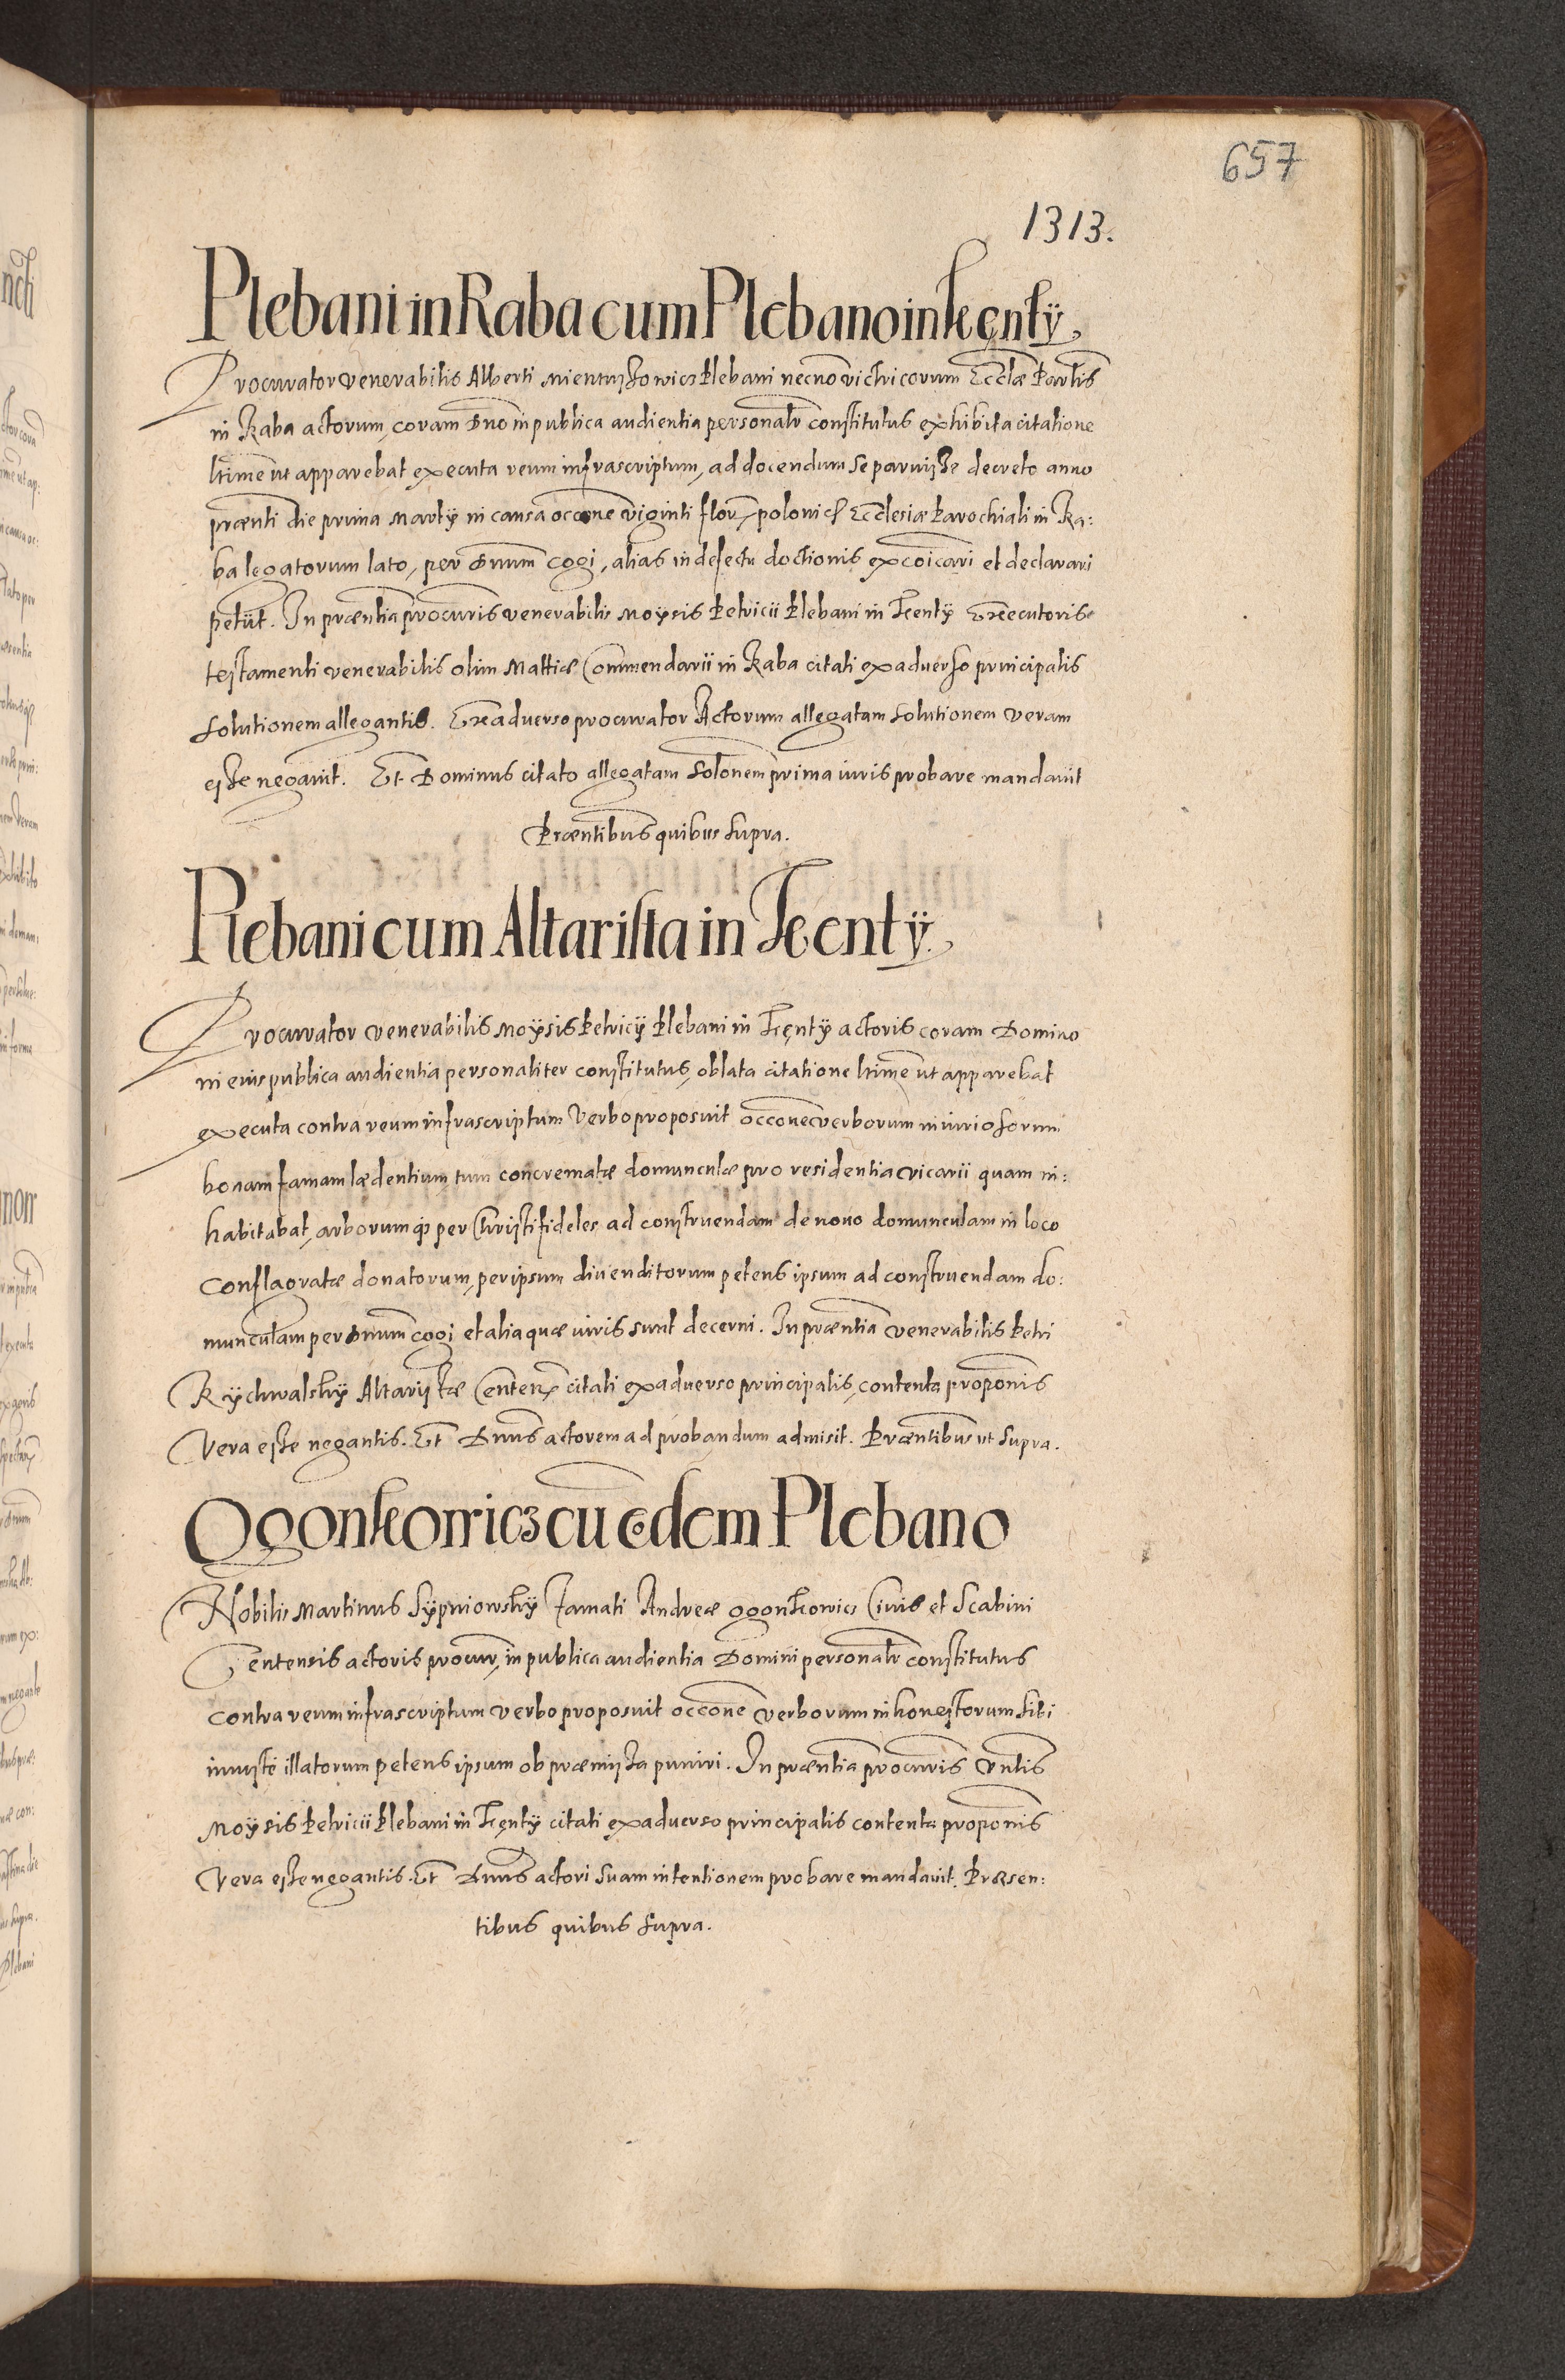 657
1313.
Plebani in Raba cum Plebano in Kęnty.
Procurator venerabilis Alberti plebani necno victricorum Ecclæ Parlis
in Raba actorum, coram Dno in publica audientia personalr constitutus exhibita citatione
ltime ut apparebat executa reum infrascriptum, ad docendum se paruisse decreto anno
prænti die prima Martÿ in causa occone viginti flor, polonic Ecclesiæ Parochiali in Ra:
ba legatorum lato, per Dnum cogi, alias in defectu doctionis excoicari et declarari
petiit. In præntia procuris venerabilis Moysis Petricii Plebani in Kentÿ Executoris
testamenti venerabilis olim Mattiæ Commendarii in Raba citati exaduerso principalis
solutionem allegantis. Exaduerso procurator Actorum allegatam solutionem veram
esse negauit. Et Dominus citato allegatam solonem prima iuris probare mandauit
Præntibus quibus supra.
Plebani cum Altarista in Kenty.
Procurator venerabilis Moÿsis Petricÿ Plebani in Kęntÿ actoris coram Domino
in eius publica audientia personaliter constitutus, oblata citatione ltime ut apparebat
executa contra reum infrascriptum verbo proposuit occone verborum iniuriosorum
bonam famam lædentium, tum concrematæ domunculæ pro residentia vicarii quam in:
habitabat, arborum q3 per Christifideles ad construendam de nouo domunculam in loco
conflagratæ donatorum, per ipsum diuenditorum petens ipsum ad construendam do:
munculam per Dnum cogi et alia quæ iuris sunt decerni. In præntia venerabilis Petri
Rÿchwalskÿ Altaristæ Centen citati exaduerso principalis, contenta proponis
vera esse negantis. Et Dnus actorem ad probandum admisit. Præntibus ut supra.
Ogonkowicz cu eodem Plebano
Nobilis Martinus Sÿpniowskÿ famati Andreæ Ogonkowicz Ciuis et Scabini
Centensis actoris procur, in publica audientia Domini personalr constitutus
contra reum infrascriptum verbo proposuit occone verborum inhonestorum sibi
iniuste illatorum petens ipsum ob præmissa puniri. In præntia procuris Vnlis
Moÿsis Petricii Plebani in Kęntÿ citati exaduerso principalis contenta proponis
vera esse negantis. Et Dnus actori suam intentionem probare mandauit. Præsen:
tibus quibus supra.